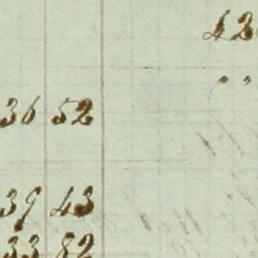 42
" "
36 52
39 43
33 82